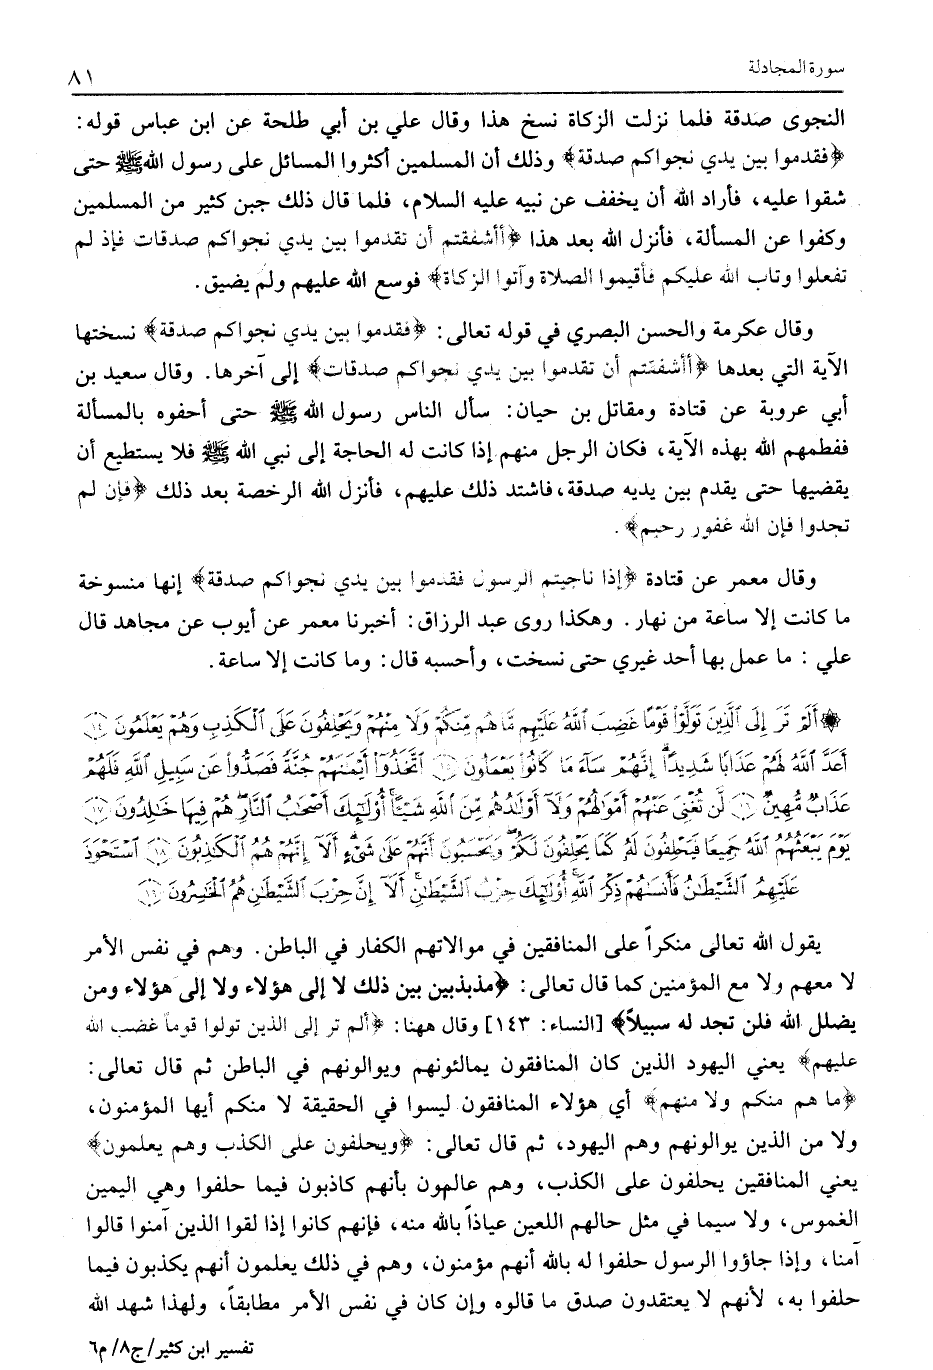 سورة المجادلة
٨١
النجوى صدقة فلما نزلت الزكاة نسخ هذا وقال علي بن أبي طلحة عن ابن عباس قوله:
﴿فقدموا بين يدي نجواكم صدقة﴾ وذلك أن المسلمين أكثروا المسائل على رسول الله ﷺ حتى
شقوا عليه، فأراد الله أن يخفف عن نبيه عليه السلام، فلما قال ذلك جبن كثير من المسلمين
وكفوا عن المسألة، فأنزل الله بعد هذا ﴿أأشفقتم أن تقدموا بين يدي نجواكم صدقات فإذ لم
تفعلوا وتاب الله عليكم فأقيموا الصلاة وآتوا الزكاة﴾ فوسع الله عليهم ولم يضيق.
وقال عكرمة والحسن البصري في قوله تعالى: ﴿فقدموا بين يدي نجواكم صدقة﴾ نسختها
الآية التي بعدها ﴿أأشفقتم أن تقدموا بين يدي نجواكم صدقات﴾ إلى آخرها. وقال سعيد بن
أبي عروبة عن قتادة ومقاتل بن حيان: سأل الناس رسول الله ﷺ حتى أحفوه بالمسألة
ففطمهم الله بهذه الآية، فكان الرجل منهم إذا كانت له الحاجة إلى نبي الله ﷺ فلا يستطيع أن
يقضيها حتى يقدم بين يديه صدقة، فاشتد ذلك عليهم، فأنزل الله الرخصة بعد ذلك ﴿فإن لم
تجدوا فإن الله غفور رحيم﴾.
وقال معمر عن قتادة ﴿إذا ناجيتم الرسول فقدموا بين يدي نجواكم صدقة﴾ إنها منسوخة
ما كانت إلا ساعة من نهار. وهكذا روى عبد الرزاق: أخبرنا معمر عن أيوب عن مجاهد قال
علي: ما عمل بها أحد غيري حتى نسخت، وأحسبه قال: وما كانت إلا ساعة.
۞ أَلَمْ تَرَ إِلَى الَّذِينَ تَوَلَّوْا قَوْمًا غَضِبَ اللَّهُ عَلَيْهِم مَّا هُم مِّنكُمْ وَلَا مِنْهُمْ وَيَحْلِفُونَ عَلَى الْكَذِبِ وَهُمْ يَعْلَمُونَ ﴿١٤﴾
أَعَدَّ اللَّهُ لَهُمْ عَذَابًا شَدِيدًا إِنَّهُمْ سَاءَ مَا كَانُوا يَعْمَلُونَ ﴿١٥﴾ اتَّخَذُوا أَيْمَانَهُمْ جُنَّةً فَصَدُّوا عَن سَبِيلِ اللَّهِ فَلَهُمْ
عَذَابٌ مُّهِينٌ ﴿١٦﴾ لَّن تُغْنِيَ عَنْهُمْ أَمْوَالُهُمْ وَلَا أَوْلَادُهُم مِّنَ اللَّهِ شَيْئًا أُولَٰئِكَ أَصْحَابُ النَّارِ هُمْ فِيهَا خَالِدُونَ ﴿١٧﴾
يَوْمَ يَبْعَثُهُمُ اللَّهُ جَمِيعًا فَيَحْلِفُونَ لَهُ كَمَا يَحْلِفُونَ لَكُمْ وَيَحْسَبُونَ أَنَّهُمْ عَلَىٰ شَيْءٍ أَلَا إِنَّهُمْ هُمُ الْكَاذِبُونَ ﴿١٨﴾ اسْتَحْوَذَ
عَلَيْهِمُ الشَّيْطَانُ فَأَنسَاهُمْ ذِكْرَ اللَّهِ أُولَٰئِكَ حِزْبُ الشَّيْطَانِ أَلَا إِنَّ حِزْبَ الشَّيْطَانِ هُمُ الْخَاسِرُونَ ﴿١٩﴾
يقول الله تعالى منكراً على المنافقين في موالاتهم الكفار في الباطن. وهم في نفس الأمر
لا معهم ولا مع المؤمنين كما قال تعالى: ﴿مذبذبين بين ذلك لا إلى هؤلاء ولا إلى هؤلاء ومن
يضلل الله فلن تجد له سبيلاً﴾ [النساء: ١٤٣] وقال ههنا: ﴿ألم تر إلى الذين تولوا قوماً غضب الله
عليهم﴾ يعني اليهود الذين كان المنافقون يمالئونهم ويوالونهم في الباطن ثم قال تعالى:
﴿ما هم منكم ولا منهم﴾ أي هؤلاء المنافقون ليسوا في الحقيقة لا منكم أيها المؤمنون،
ولا من الذين يوالونهم وهم اليهود، ثم قال تعالى: ﴿ويحلفون على الكذب وهم يعلمون﴾
يعني المنافقين يحلفون على الكذب، وهم عالمون بأنهم كاذبون فيما حلفوا وهي اليمين
الغموس، ولا سيما في مثل حالهم اللعين عياذاً بالله منه، فإنهم كانوا إذا لقوا الذين آمنوا قالوا
آمنا، وإذا جاؤوا الرسول حلفوا له بالله أنهم مؤمنون، وهم في ذلك يعلمون أنهم يكذبون فيما
حلفوا به، لأنهم لا يعتقدون صدق ما قالوه وإن كان في نفس الأمر مطابقاً، ولهذا شهد الله
تفسير ابن كثير/ج٨/م٦